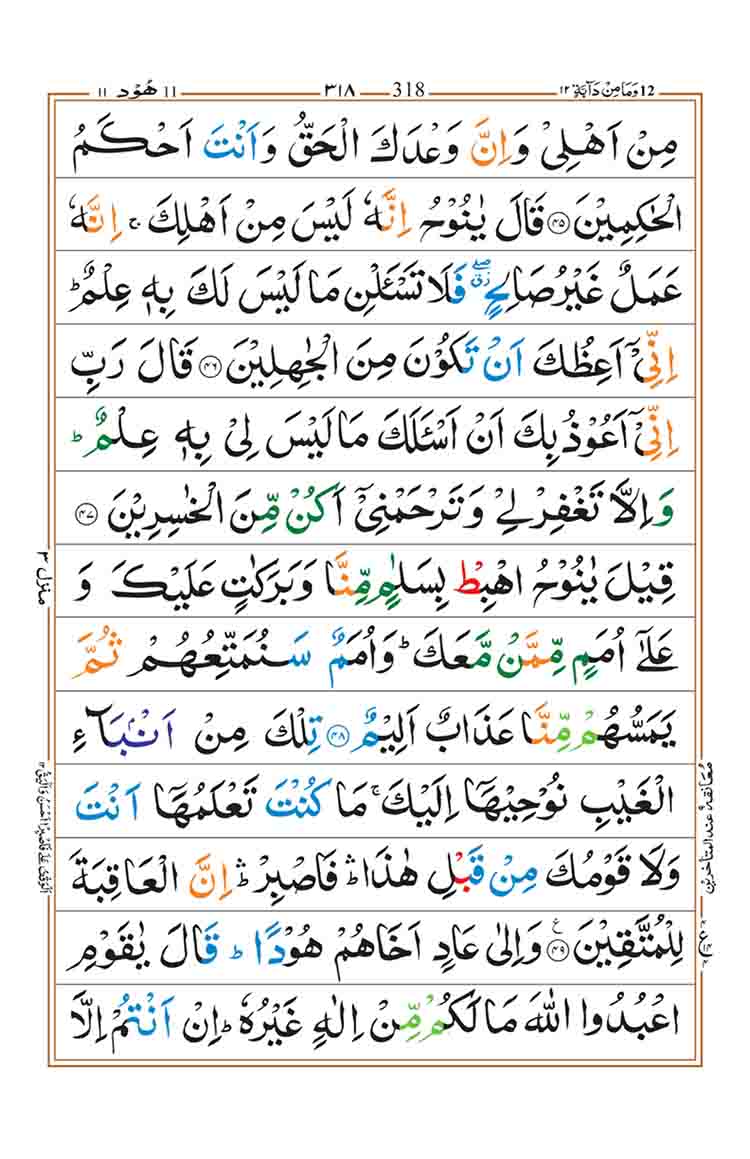 12 وَمَا مِنْ دَآبَّةٍ ۱۲ 318 ۳۱۸ 11 هُوْد ۱۱
مِنْ اَهْلِیْ وَاِنَّ وَعْدَكَ الْحَقُّ وَاَنْتَ اَحْكَمُ
الْحٰكِمِیْنَ ۴۵ قَالَ یٰنُوْحُ اِنَّهٗ لَیْسَ مِنْ اَهْلِكَ ۚ اِنَّهٗ
عَمَلٌ غَیْرُ صَالِحٍ ۗۖ فَلَا تَسْـَٔلْنِ مَا لَیْسَ لَكَ بِهٖ عِلْمٌ ؕ
اِنِّیْۤ اَعِظُكَ اَنْ تَكُوْنَ مِنَ الْجٰهِلِیْنَ ۴۶ قَالَ رَبِّ
اِنِّیْۤ اَعُوْذُ بِكَ اَنْ اَسْـَٔلَكَ مَا لَیْسَ لِیْ بِهٖ عِلْمٌ ؕ
وَاِلَّا تَغْفِرْ لِیْ وَتَرْحَمْنِیْۤ اَكُنْ مِّنَ الْخٰسِرِیْنَ ۴۷
قِیْلَ یٰنُوْحُ اهْبِطْ بِسَلٰمٍ مِّنَّا وَبَرَكٰتٍ عَلَیْكَ وَ
عَلٰۤی اُمَمٍ مِّمَّنْ مَّعَكَ ؕ وَاُمَمٌ سَنُمَتِّعُهُمْ ثُمَّ
یَمَسُّهُمْ مِّنَّا عَذَابٌ اَلِیْمٌ ۴۸ تِلْكَ مِنْ اَنْۢبَآءِ
الْغَیْبِ نُوْحِیْهَاۤ اِلَیْكَ ۚ مَا كُنْتَ تَعْلَمُهَاۤ اَنْتَ
وَلَا قَوْمُكَ مِنْ قَبْلِ هٰذَا ۛؕ فَاصْبِرْ ۛؕ اِنَّ الْعَاقِبَةَ
لِلْمُتَّقِیْنَ ۴۹ ع وَاِلٰی عَادٍ اَخَاهُمْ هُوْدًا ؕ قَالَ یٰقَوْمِ
اعْبُدُوا اللّٰهَ مَا لَكُمْ مِّنْ اِلٰهٍ غَیْرُهٗ ؕ اِنْ اَنْتُمْ اِلَّا
منزل ۳
معانقة عند المتاخرین